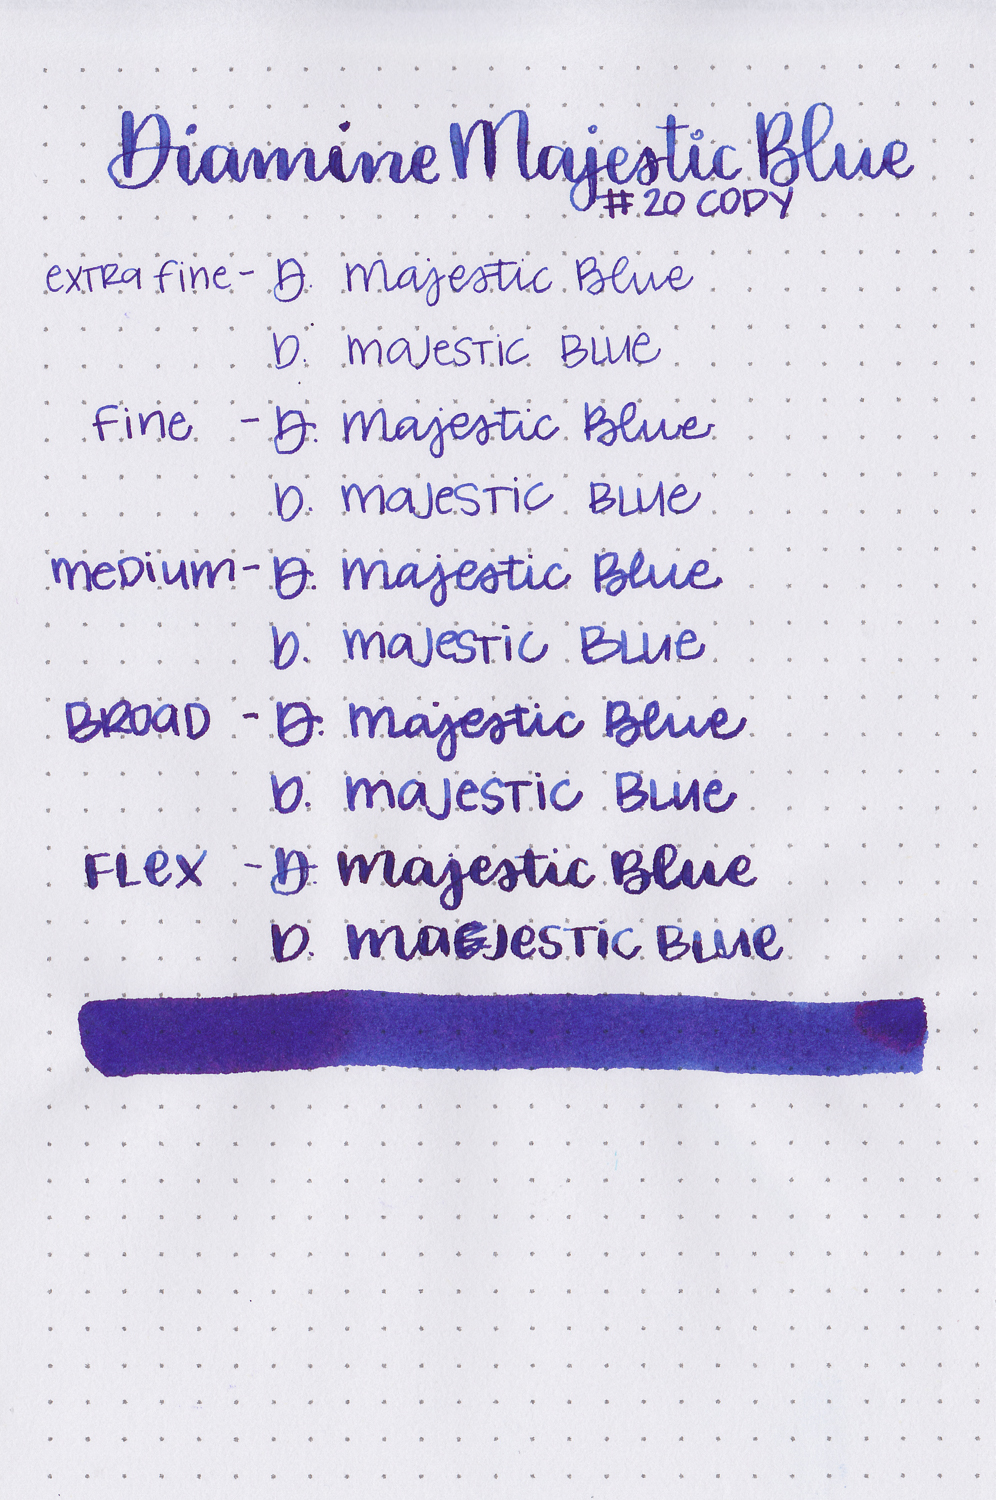 Diamine Majestic Blue
#20 COPY
extra fine - D. Majestic Blue
D. majestic Blue
fine - D. Majestic Blue
D. majestic Blue
medium - D. Majestic Blue
D. majestic Blue
BROAD - D. Majestic Blue
D. majestic Blue
FLex - D. Majestic Blue
D. majestic Blue